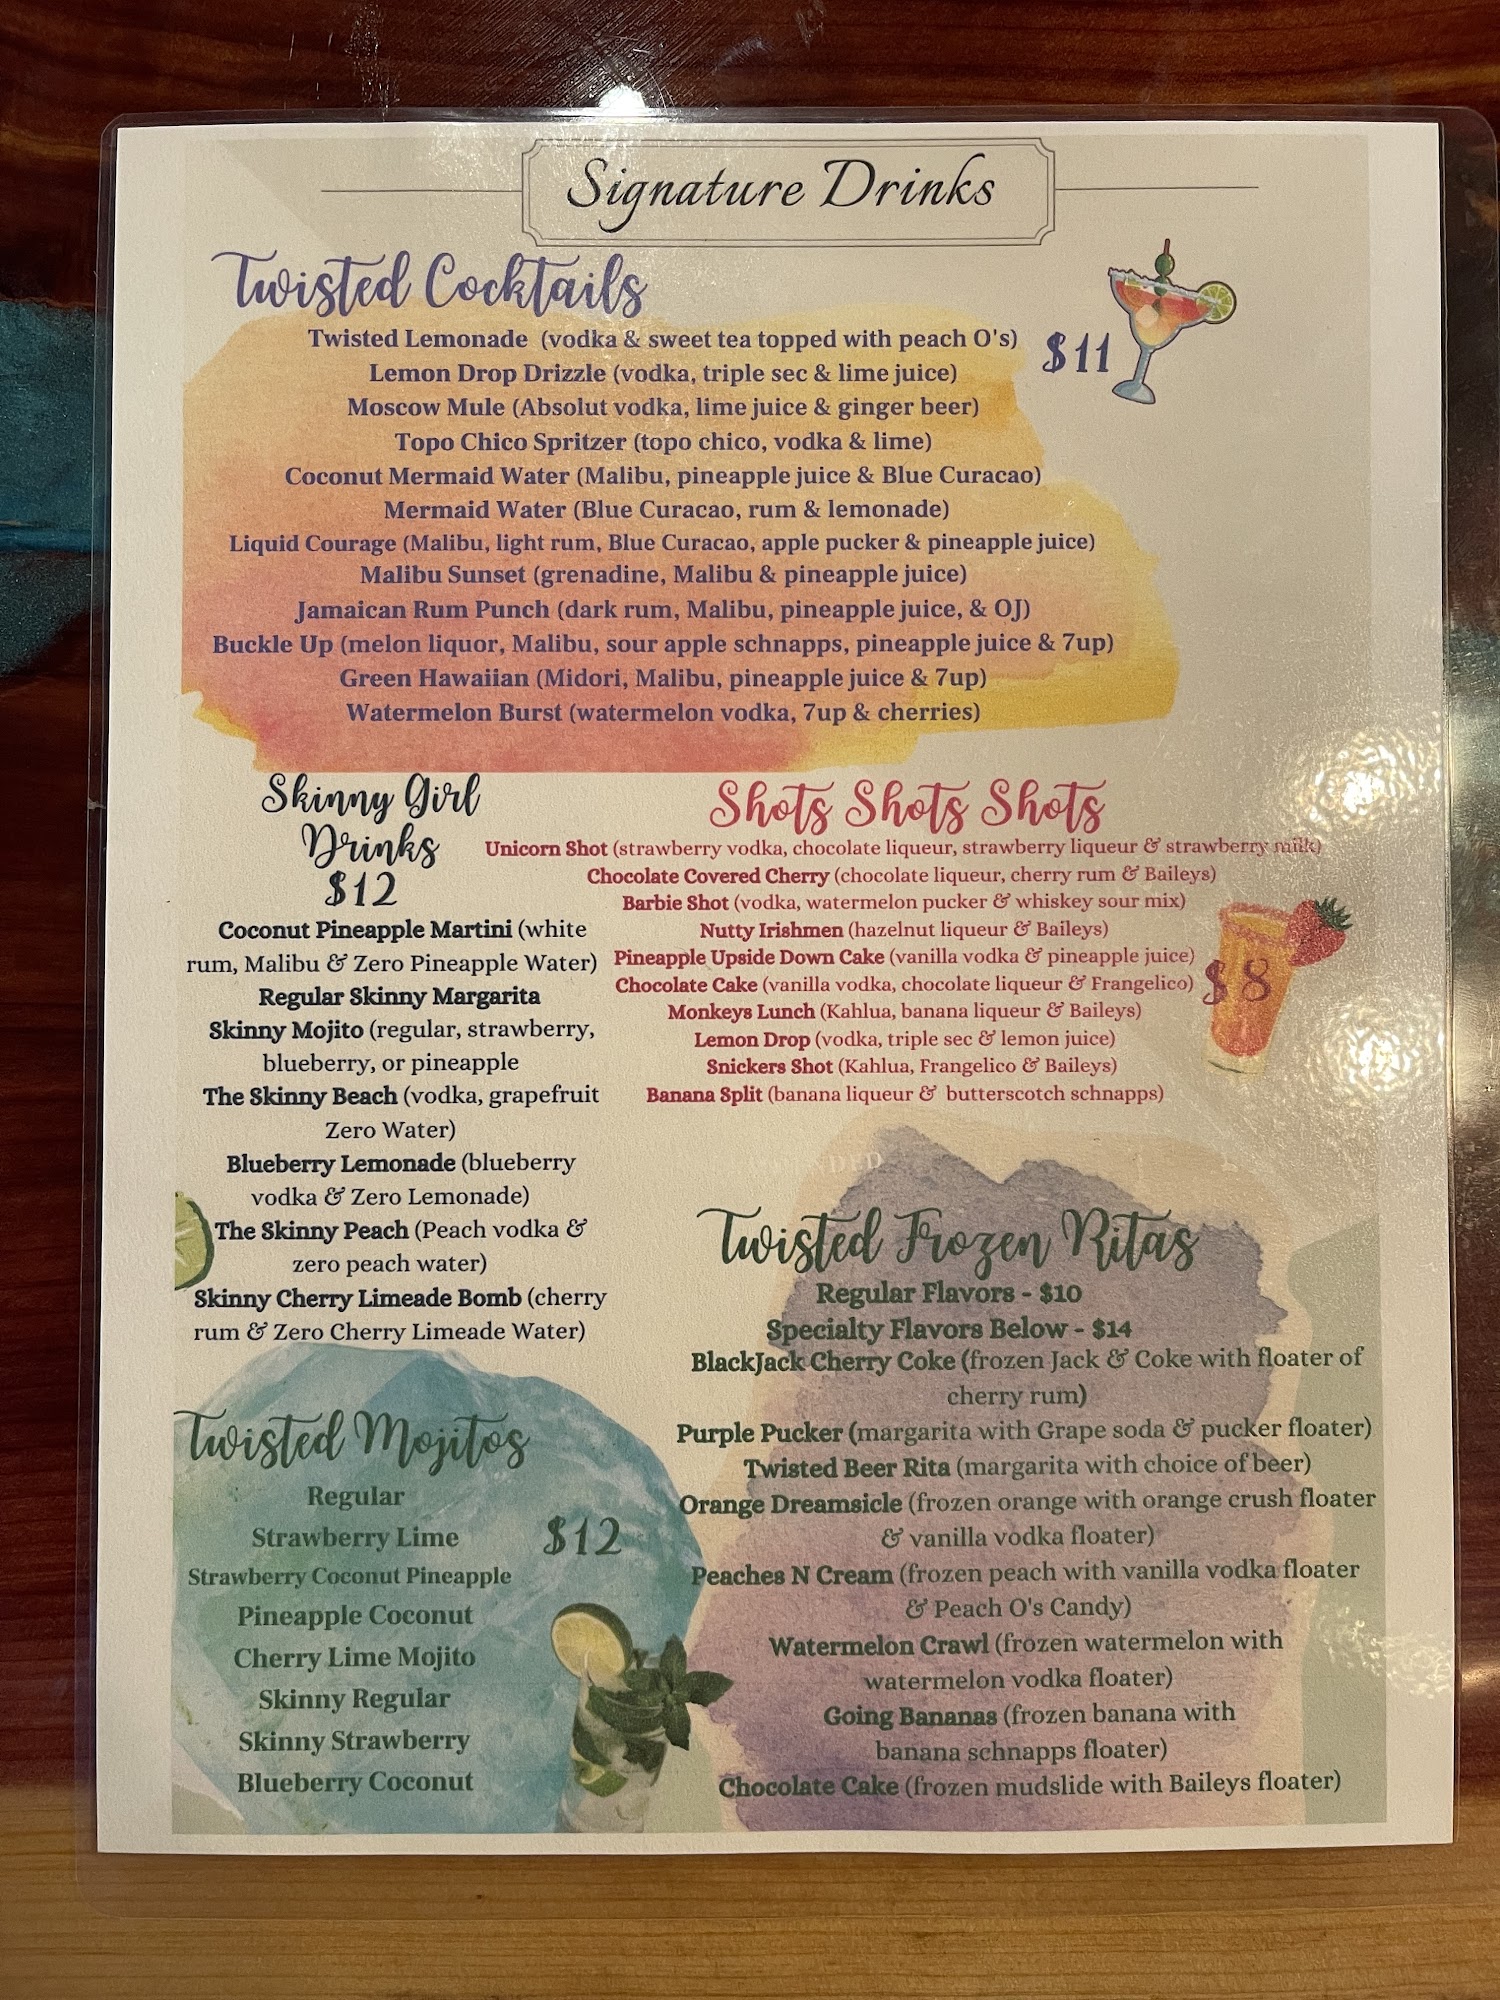 Signature Drinks
Twisted Cocktails
Twisted Lemonade (vodka & sweet tea topped with peach O's)
$11
Lemon Drop Drizzle (vodka, triple sec & lime juice)
Moscow Mule (Absolut vodka, lime juice & ginger beer)
Topo Chico Spritzer (topo chico, vodka & lime)
Coconut Mermaid Water (Malibu, pineapple juice & Blue Curacao)
Mermaid Water (Blue Curacao, rum & lemonade)
Liquid Courage (Malibu, light rum, Blue Curacao, apple pucker & pineapple juice)
Malibu Sunset (grenadine, Malibu & pineapple juice)
Jamaican Rum Punch (dark rum, Malibu, pineapple juice, & OJ)
Buckle Up (melon liquor, Malibu, sour apple schnapps, pineapple juice & 7up)
Green Hawaiian (Midori, Malibu, pineapple juice & 7up)
Watermelon Burst (watermelon vodka, 7up & cherries)
Skinny Girl
Drinks
$12
Coconut Pineapple Martini (white
rum, Malibu & Zero Pineapple Water)
Regular Skinny Margarita
Skinny Mojito (regular, strawberry,
blueberry, or pineapple
The Skinny Beach (vodka, grapefruit
Zero Water)
Blueberry Lemonade (blueberry
vodka & Zero Lemonade)
The Skinny Peach (Peach vodka &
zero peach water)
Skinny Cherry Limeade Bomb (cherry
rum & Zero Cherry Limeade Water)
Shots Shots Shots
Unicorn Shot (strawberry vodka, chocolate liqueur, strawberry liqueur & strawberry milk)
Chocolate Covered Cherry (chocolate liqueur, cherry rum & Baileys)
Barbie Shot (vodka, watermelon pucker & whiskey sour mix)
Nutty Irishmen (hazelnut liqueur & Baileys)
Pineapple Upside Down Cake (vanilla vodka & pineapple juice)
Chocolate Cake (vanilla vodka, chocolate liqueur & Frangelico)
$8
Monkeys Lunch (Kahlua, banana liqueur & Baileys)
Lemon Drop (vodka, triple sec & lemon juice)
Snickers Shot (Kahlua, Frangelico & Baileys)
Banana Split (banana liqueur & butterscotch schnapps)
Twisted Mojitos
Regular
Strawberry Lime
$12
Strawberry Coconut Pineapple
Pineapple Coconut
Cherry Lime Mojito
Skinny Regular
Skinny Strawberry
Blueberry Coconut
Twisted Frozen Ritas
Regular Flavors - $10
Specialty Flavors Below - $14
BlackJack Cherry Coke (frozen Jack & Coke with floater of
cherry rum)
Purple Pucker (margarita with Grape soda & pucker floater)
Twisted Beer Rita (margarita with choice of beer)
Orange Dreamsicle (frozen orange with orange crush floater
& vanilla vodka floater)
Peaches N Cream (frozen peach with vanilla vodka floater
& Peach O's Candy)
Watermelon Crawl (frozen watermelon with
watermelon vodka floater)
Going Bananas (frozen banana with
banana schnapps floater)
Chocolate Cake (frozen mudslide with Baileys floater)